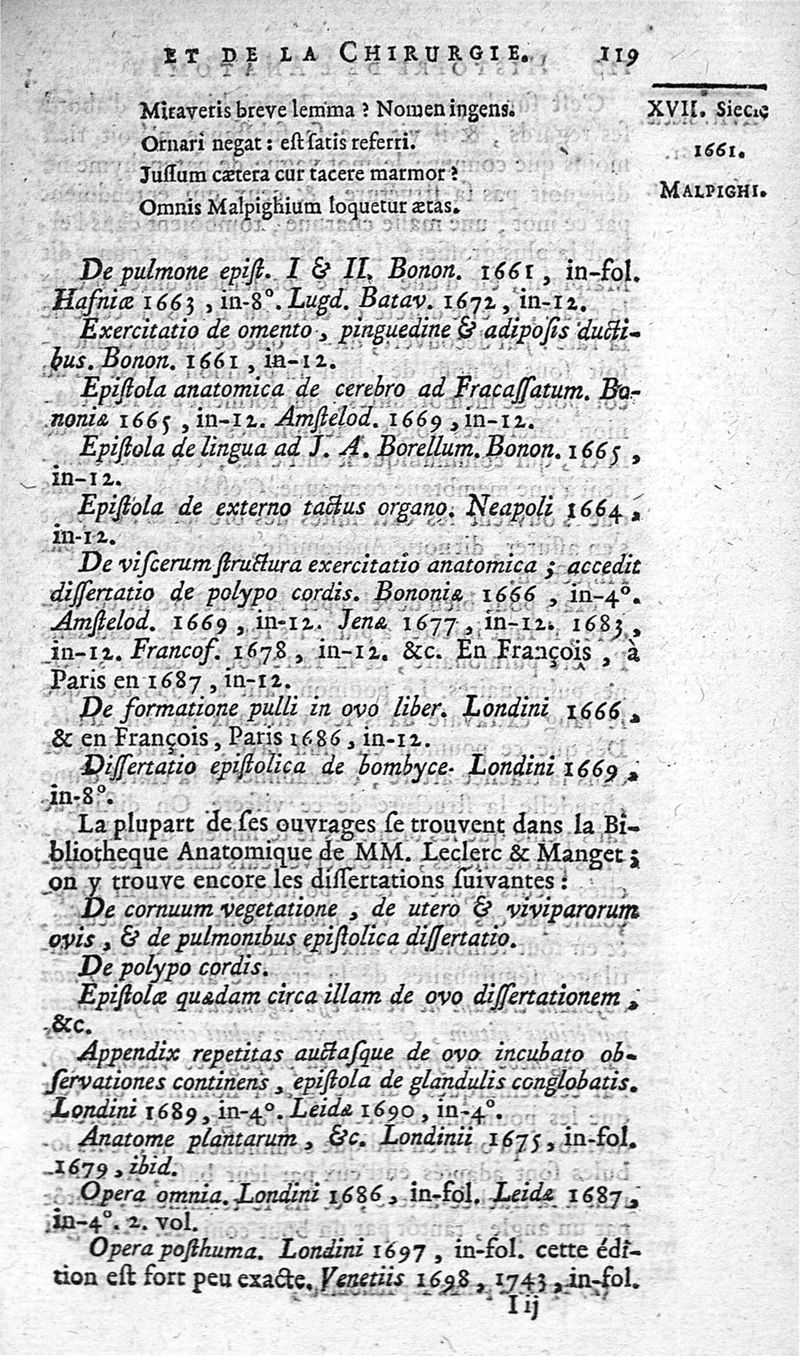 ET DE LA CHIRURGIE. 119
XVII. Siecle
1661.
MALPIGHI.
Miraveris breve lemma ? Nomen ingens.
Ornari negat : est satis referri.
Jussum cætera cur tacere marmor ?
Omnis Malpighium loquetur ætas.
De pulmone epist. I & II. Bonon. 1661, in-fol.
Hafniæ 1663, in-8°. Lugd. Batav. 1672, in-12.
Exercitatio de omento, pinguedine & adiposis ducti-
bus. Bonon. 1661, in-12.
Epistola anatomica de cerebro ad Fracassatum. Bo-
noniæ 1665, in-12. Amstelod. 1669, in-12.
Epistola de lingua ad J. A. Borellum. Bonon. 1665,
in-12.
Epistola de externo tactus organo. Neapoli 1664,
in-12.
De viscerum structura exercitatio anatomica ; accedit
dissertatio de polypo cordis. Bononiæ 1666, in-4°.
Amstelod. 1669, in-12. Jenæ 1677, in-12. 1683,
in-12. Francof. 1678, in-12. &c. En François, à
Paris en 1687, in-12.
De formatione pulli in ovo liber. Londini 1666,
& en François, Paris 1686, in-12.
Dissertatio epistolica de bombyce. Londini 1669,
in-8°.
La plupart de ses ouvrages se trouvent dans la Bi-
bliotheque Anatomique de MM. Leclerc & Manget ;
on y trouve encore les dissertations suivantes :
De cornuum vegetatione, de utero & viviparorum
ovis, & de pulmonibus epistolica dissertatio.
De polypo cordis.
Epistolæ quædam circa illam de ovo dissertationem,
&c.
Appendix repetitas auctasque de ovo incubato ob-
servationes continens, epistola de glandulis conglobatis.
Londini 1689, in-4°. Leidæ 1690, in-4°.
Anatome plantarum, &c. Londinii 1675, in-fol.
1679, ibid.
Opera omnia. Londini 1686, in-fol. Leidæ 1687,
in-4°. 2. vol.
Opera posthuma. Londini 1697, in-fol. cette édi-
tion est fort peu exacte. Venetiis 1698, 1743, in-fol.
I ij